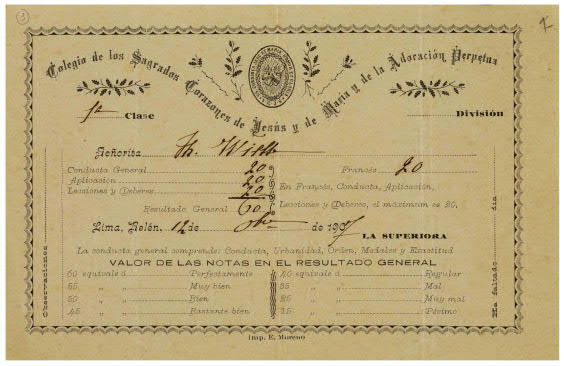 3
Colegio de los Sagrados Corazones de Jesús y de María y de la Adoración Perpetua
1a Clase División
Señorita Th.
Conducta General 20 Francés 20
Aplicación 20
Lecciones y Deberes 20 En Francés, Conducta, Aplicación,
Resultado General 60 Lecciones y Deberes, el maximum es 20.
Lima, Belén, 12 de de 190
LA SUPERIORA
La conducta general comprende: Conducta, Urbanidad, Orden, Modales y Exactitud
VALOR DE LAS NOTAS EN EL RESULTADO GENERAL
60 equivale á Perfectamente 40 equivale á Regular
55 „ „ Muy bien 35 „ „ Mal
50 „ „ Bien 25 „ „ Muy mal
45 „ „ Bastante bien 15 „ „ Pésimo
Observaciones
Ha faltado día
Imp. E. Moreno